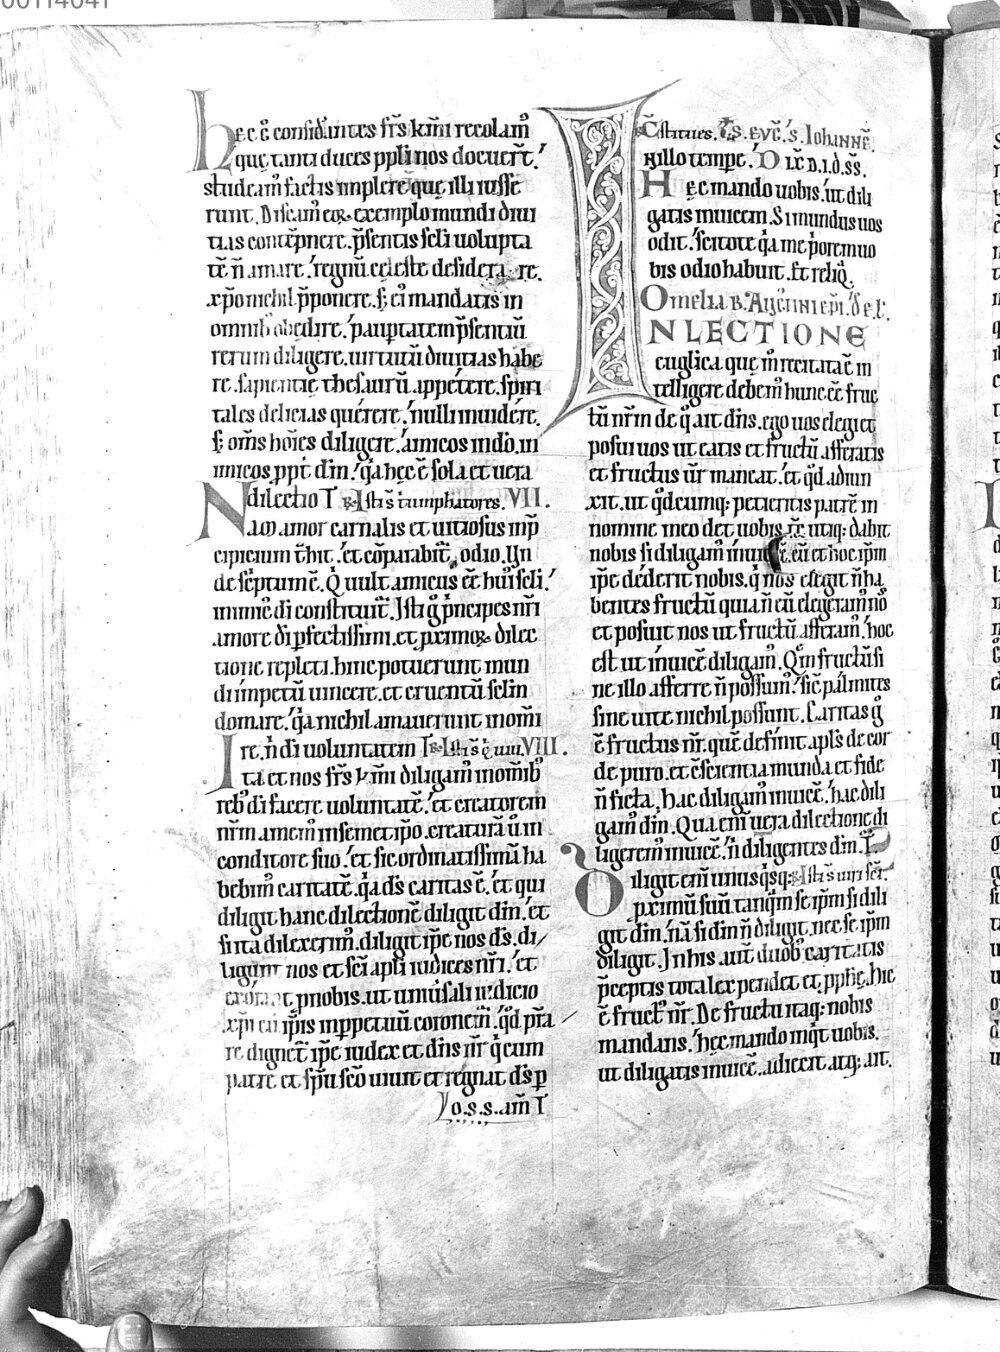 00114041
hec ē considerantes frs̄ km̄i recolam᷒
quę tanti duces ppl̄i nos docuer̄t.
studeam᷒ factis implere quę illi iusse
runt. Discam᷒ eoꝝ exemplo mundi diui
tias contēpnere. p̄sentis sc̄li uolupta
tē n̄ amare. regnū celeste desidera re.
xp̄o nichil p̄ponere. s; ei mandatis in
omnib᷒ obedire. paup̄tatem p̄sentiū
rerum diligere. uirtutū diuitias habe
re. sapientię thesaurū appetere. spiri
tales delicias querere. nulli inuidere.
s; om̄s hoīes diligere. amicos in dō. in
imicos ppt̄ dm̄. q̇a hęc ē sola et uera
dilectio T R Isti s̄ triumphatores. VII.
Nam amor carnalis et uitiosus inp̄
cipicium t̄hit. et cōparabit᷒ odio. Vn
de sc̄ptum ē. Qui uult amicus eē hui᷒ sc̄li.
inimic᷒ di constituit᷒. Isti g̊ p̄ncipes nr̄i
amore di pfectissimi. et ꝓximoꝝ dilec
tione repleti. hinc potuerunt mun
di impetū uincere. et cruentū felin
domare. q̇a nichil amauerunt momi
re. n̄ di uoluntatem T R Isti s̄ q̇ uiu. VIII.
Ita et nos frs̄ km̄i diligam᷒ in om̄ib᷒
reb᷒ di facere uoluntatē. et creatorem
nr̄m amem᷒ in semet ip̄o. creaturā ū in
conditore suo. et sic ordinatissimā ha
bebim᷒ caritatē. q̇a ds̄ caritas ē. et qui
diligit hanc dilectionē diligit dm̄. et
si ita dilexerim᷒. diligit ip̄e nos ds̄. di
ligunt nos et sc̄i apl̄i iudices nr̄i. et
orant p nobis. ut in uniu̇sali iudicio
xp̄i cū ip̄is in ppetuū coronem̄. q̇d p̄sta
re dignet᷒ ip̄e iudex et dn̄s nr̄ q̇ cum
patre et sp̄u sc̄o uiuit et regnat ds̄ p
O. s. s. am̄ T
Sc̄d̄m Iohannē.
N illo tempr̄. D ic̄ d. i. d. ss̄.
Hec mando uobis. ut dili
gatis inuicem. Si mundus uos
odit. scitote q̇a me p̄orem uo
bis odio habuit. Et reliq̄.
Omelia B. Augustini ep̄i. de e.
IN LECTIONE
euglica quę m̊ recitata ē in
telligere debem᷒ hunc eē fruc
tū nr̄m de q̊ ait dn̄s. ego uos elegi et
posui uos ut eatis et fructū afferatis
et fructus ur̄ maneat. et q̊d adiun
xit. ut q̊dcumq; petieritis patrē in
nomine meo det uobis. itaq; dabit
nobis si diligam᷒ inuicē. cū et hoc ip̄m
ip̄e dederit nobis. q̇ nos elegit n̄ ha
bentes fructū quia n̄ eū elegeram᷒ nō
et posuit nos ut fructū afferam᷒. hoc
est ut inuicē diligam᷒. Qm̄ fructū si
ne illo afferre n̄ possum᷒. sic̄ palmites
sine uite nichil possunt. Caritas g̊
ē fructus nr̄. quē definit apl̄s de cor
de puro. et c̄scientia munda et fide
n̄ ficta, hac diligam᷒ inuicē. hac dili
gam᷒ dm̄. Qua eni uera dilectione di
ligerem᷒ inuicē. n̄ diligentes dm̄. T
Diligit eni unusq̇sq; R Isti s̄ uiri sc̄i.
pximū suū tanq̄m se ip̄m si dili
git dm̄. nā si dm̄ n̄ diligit. nec se ip̄m
diligit. In his aut̄ duob᷒ caritatis
p̄ceptis tota lex pendet et pph̄ę. hic
ē fruct᷒ nr̄. De fructu itaq; nobis
mandans. hęc mando inq̇t uobis.
ut diligatis inuicē.